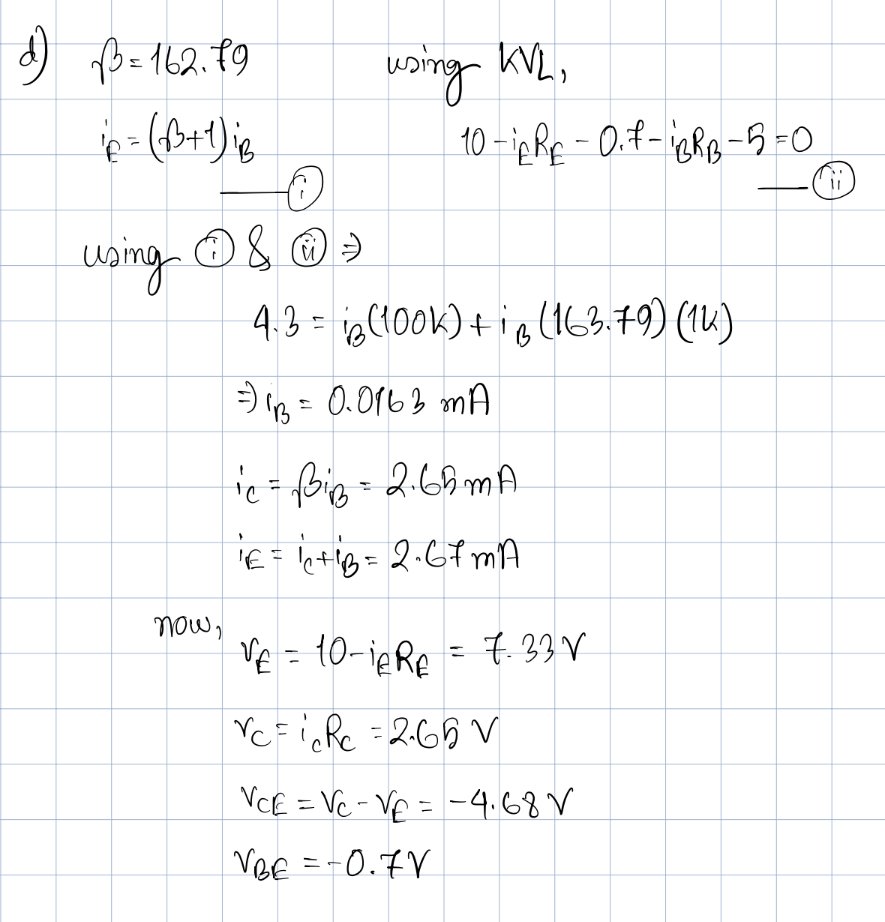 d) β = 162.79 using KVL,
i_E = (β+1)i_B 10 - i_E R_E - 0.7 - i_B R_B - 5 = 0
—— (i) —— (ii)
using (i) & (ii) ⇒
4.3 = i_B (100k) + i_B (163.79) (1k)
⇒ i_B = 0.0163 mA
i_C = βi_B = 2.65 mA
i_E = i_C + i_B = 2.67 mA
now,
V_E = 10 - i_E R_E = 7.33 V
V_C = i_C R_C = 2.65 V
V_CE = V_C - V_E = -4.68 V
V_BE = -0.7V